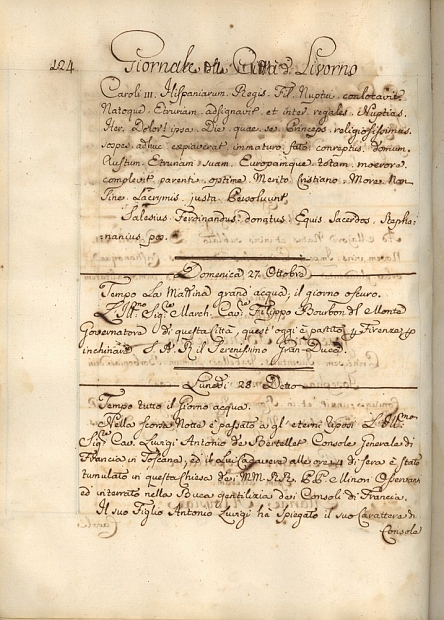 124 Giornale della Città di Livorno
Caroli III. Hispaniarum Regis Fil. Nuptui conlocavit
Natoque Etruriam adsignavit et inter regales Nuptias
Aer. Dolor! ipsa Die quae se Princeps religiosissimus
sopes adhuc expiaverat immaturo fato conreptus domum
Austum Etruriam suam Europamque totam moerore
complevit parenti optime Merito Cristiano More Non
Sine Lacrymis justa Persolvunt
Salesius Ferdinandus donatus Equis Sacerdos Stepha:
nianius pos.
Domenica 27 Ottobre
Tempo La Mattina grand' acqua, il giorno oscuro.
L'Ill.mo Sig.r March. Cav.e Filippo Bourbon del Monte
Governatore di questa Città, quest'oggi è partito p Firenze p
inchinare S. A. R. il Serenissimo Gran Duca.
Lunedì 28 Detto
Tempo tutto il Giorno acqua.
Nella scorsa Notte è passato a gl'eterni riposi L'Ill.mo
Sig.re Cav. Luigi Antonio de Bertellet Console generale di
Francia in Toscana, ed il lui Cadavere alle ore 4 di sera è stato
tumulato in questa Chiesa dei MM. RR. PP. Minori Osservan
ed interrato nella Buca gentilizia dei Consoli di Francia.
Il suo Figlio Antonio Luigi ha spiegato il suo Carattere di
Console